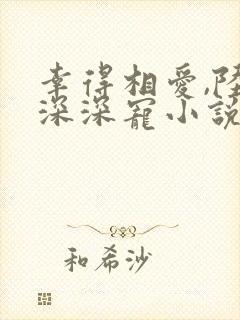 幸得相愛,陸
深深寵小説
和希沙